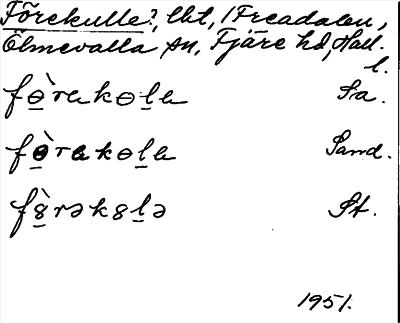 Förekulle?, lht, i Freadalen,
Ölmevalla sn, Fjäre hd, Hall.
l.
fɵ̀rekɵle Sa.
fɵ̀rekɵle Sand.
fꝸ̀rəkꝸlə St.
1951.